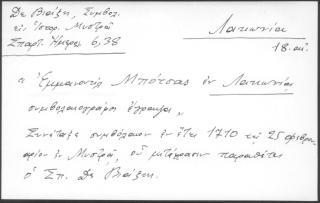 Δε Βιάζης, Συμβολ.
εις Ιστορ. Μυστρά
Σπαρτ. Ημερολ. 6,38
Λακωνία
18 αι.
« Εμμανουήλ Μπότσας εν Λακωνία
συμβολαιογράφος έγραψε,,
Συνέταξε συμβόλαιον εν έτει 1710 τη 25 φεβρου-
αρίου εν Μυστρά, ου μετάφρασιν παραθέτει
ο Σπ. Δε Βιάζης.